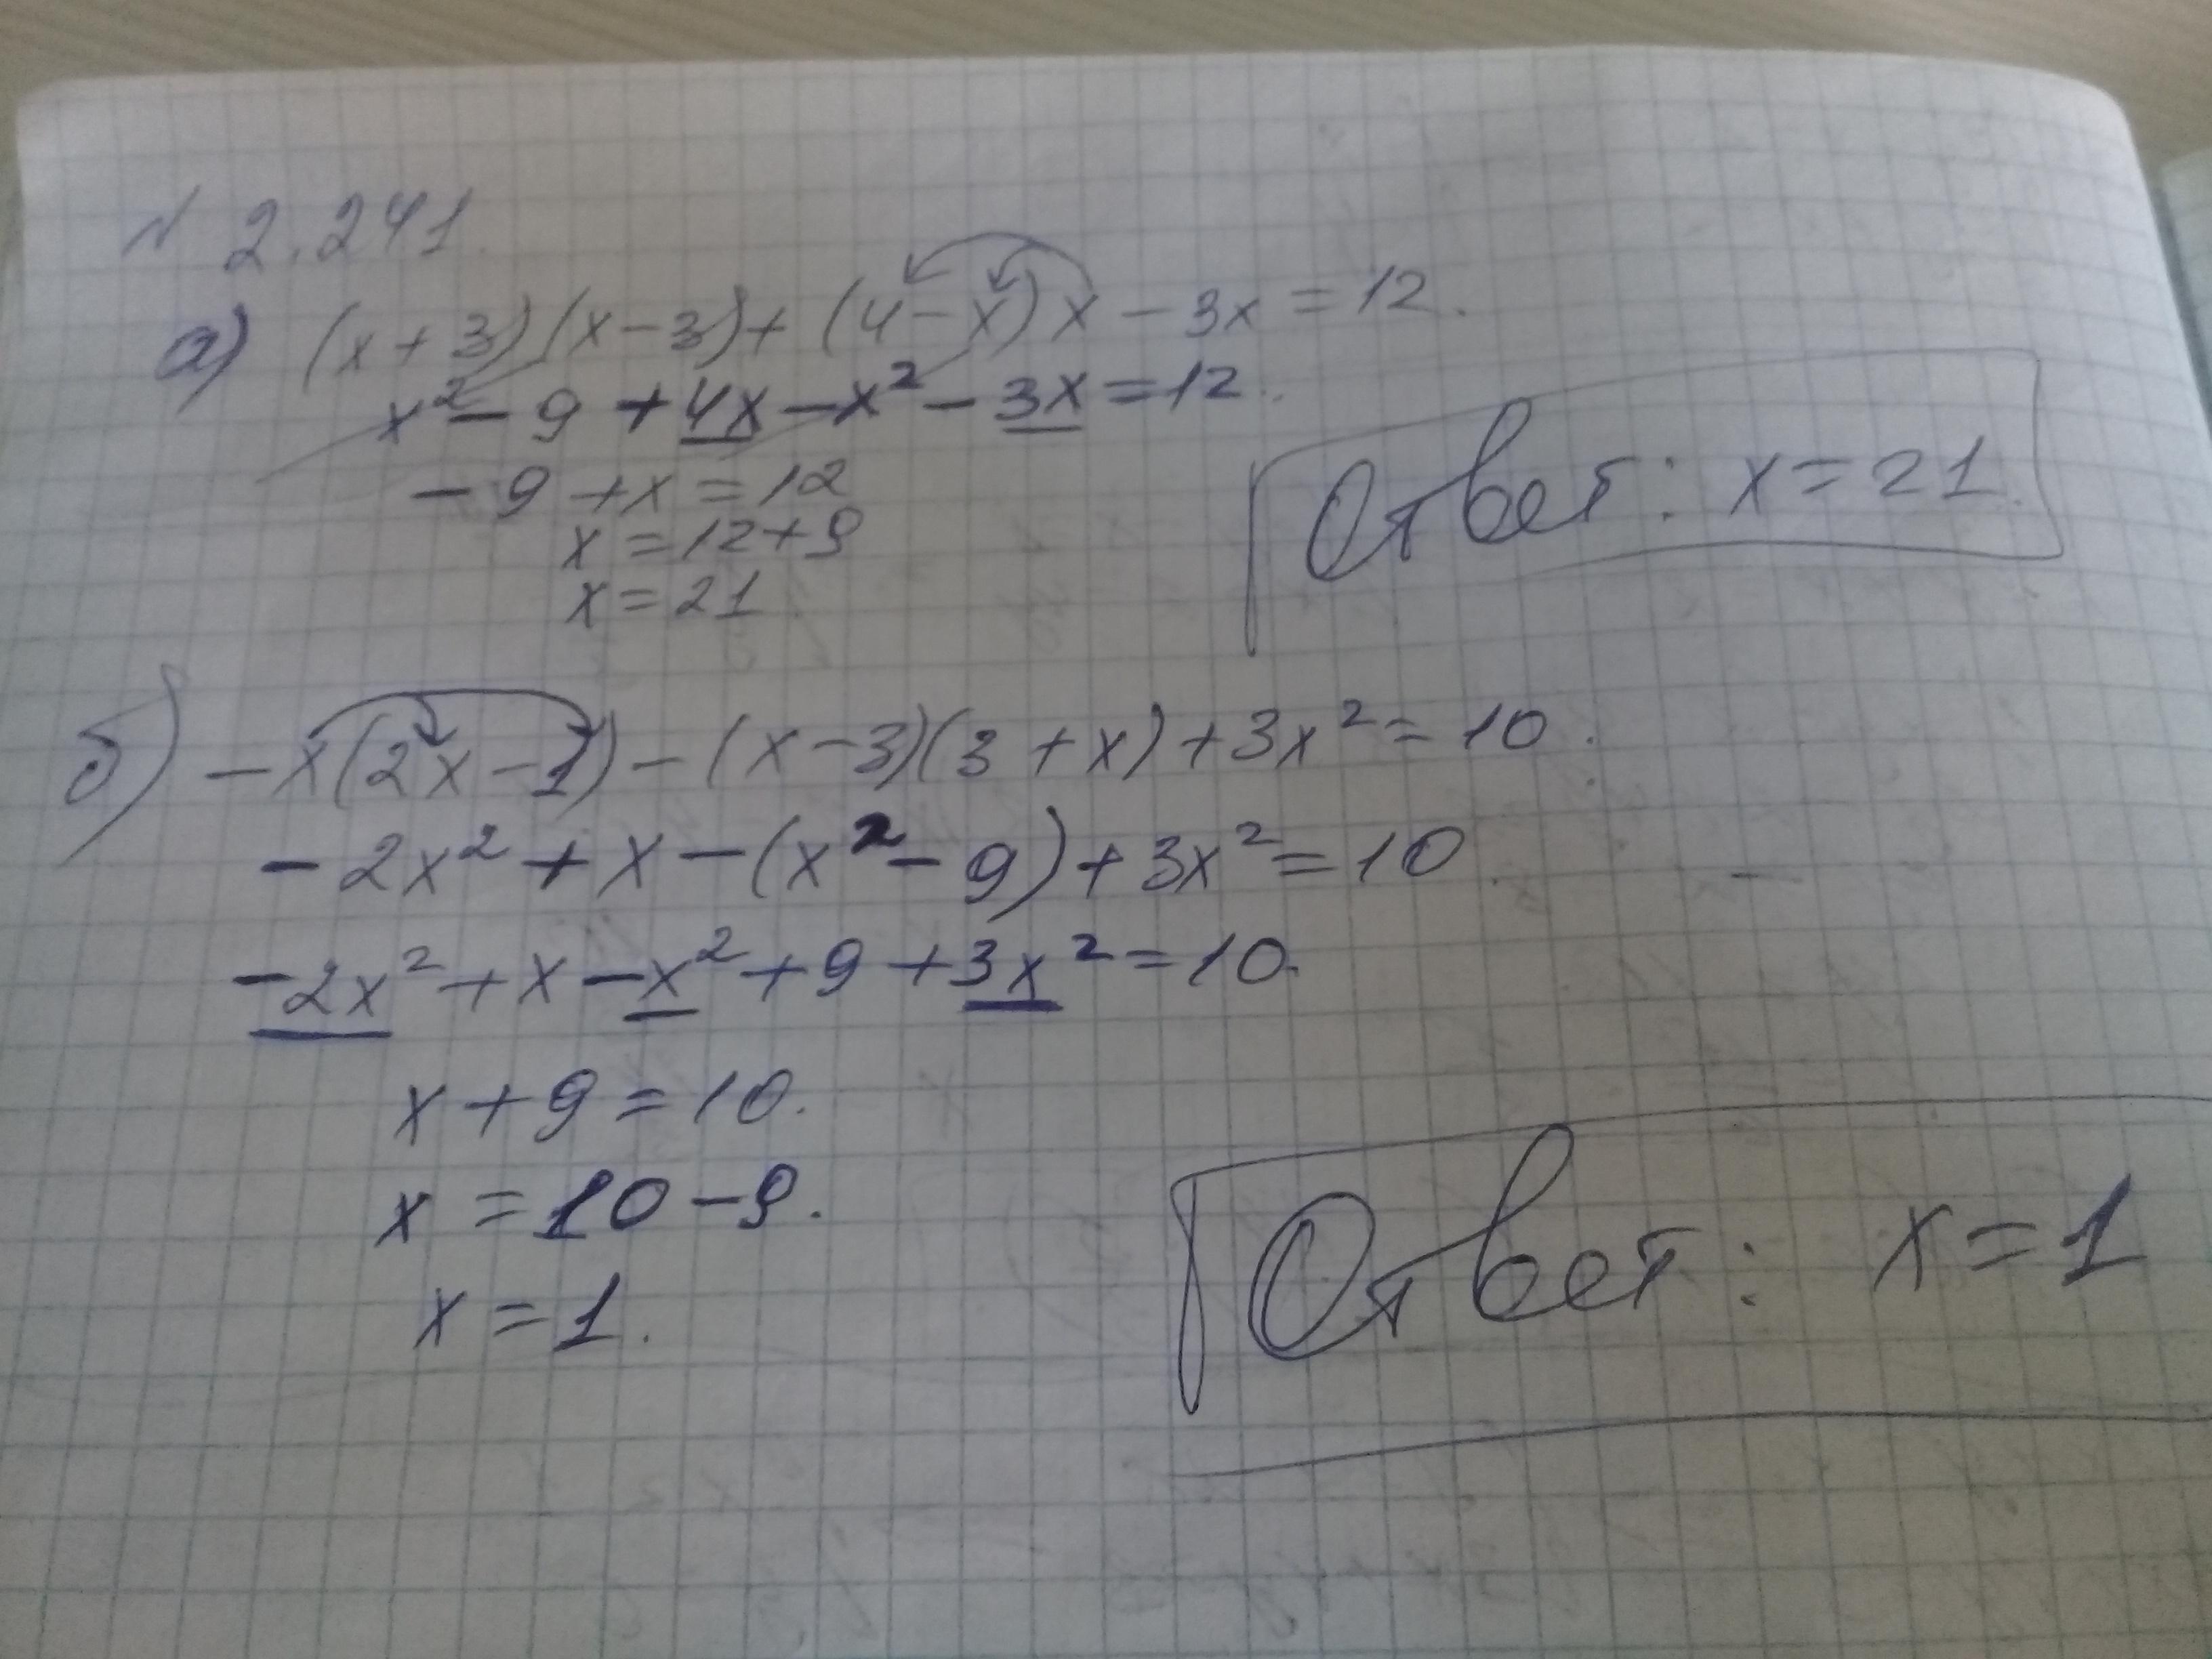 № 2.241.
а) (x+3)(x-3)+(4-x)x-3x=12.
x²-9+4x-x²-3x=12.
-9+x=12
x=12+9
x=21
Ответ: x=21.
б) -x(2x-1)-(x-3)(3+x)+3x²=10.
-2x²+x-(x²-9)+3x²=10.
-2x²+x-x²+9+3x²=10.
x+9=10.
x=10-9.
x=1.
Ответ: x=1